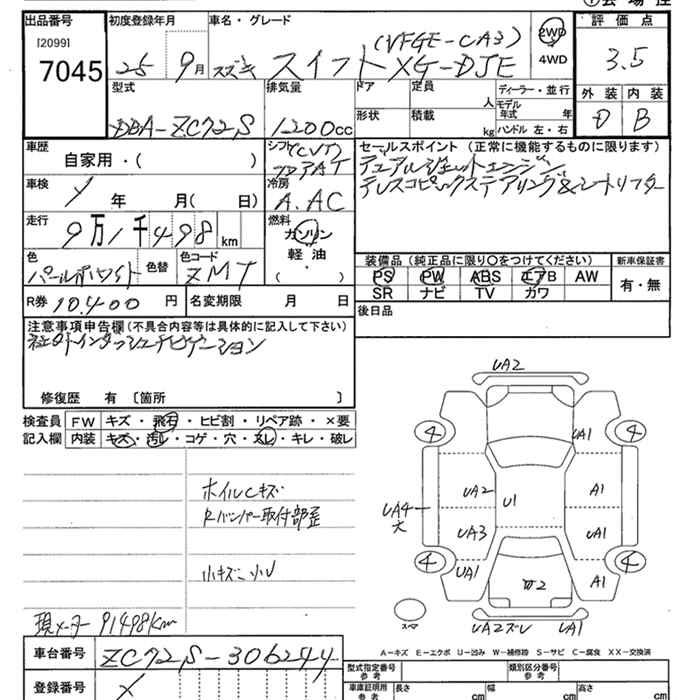 ①会場控
出品番号 初度登録年月 車名・グレード 2WD 評価点
[2099] (VFGE-CA3)
7045 25 9月 スズキ スイフト XG-DJE 4WD 3.5
型式 排気量 ドア 定員 ディーラー・並行 外装 内装
人 モデル年式 年
DBA-ZC72S 1200cc 形状 積載 kg ハンドル 左・右 D B
車歴 自家用・( ) シフト(CVT) セールスポイント(正常に機能するものに限ります)
フロアAT デュアルジェットエンジン
車検 年 月( 日) 冷房 テレスコピックステアリング&シートリフター
A.AC
走行 9万1千498km 燃料
ガソリン
色 色替 色コード 軽油 装備品(純正品に限り○をつけてください) 新車保証書
パールホワイト ZMT ・( ) PS PW ABS エアB AW 有・無
SR ナビ TV カワ
R券 10,400円 名変期限 月 日 後日品
注意事項申告欄(不具合内容等は具体的に記入して下さい)
社外インダッシュナビゲーション
修復歴 有〔箇所 〕
検査員 FW キズ・飛石・ヒビ割・リペア跡・×要
記入欄 内装 キズ・汚レ・コゲ・穴・スレ・キレ・破レ
UA2
4 4
UA1
ホイルCキズ
UA2 U1 A1
Rバンパー取付部歪
UA4
大
UA3 UA1
4 4
小キズ・小U
UA1 2 A1
スマ
UA2ズレ UA1
現メーター 91498km
A-キズ E-エクボ U-凹み W-補修跡 S-サビ C-腐食 XX-交換済
車台番号 ZC72S-306244
型式指定番号 参考 類別区分番号 参考
登録番号 X 車庫証明用 参考 長さ cm 幅 cm 高さ cm